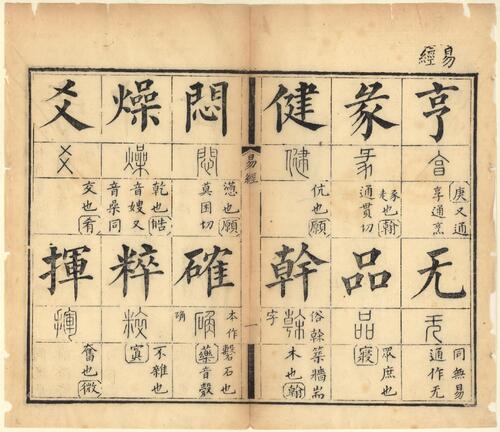 易經
亨
亯
庚又通
享通烹
无
无
同無易
通作无
彖
彖
豕走也翰
通貫切
品
品
眾庶也
寢
健
健
伉也願
幹
榦
俗榦築牆耑
木也翰
字
易經
一
悶
悶
懣也願
莫困切
確
本作
礊石也
藥音殻
燥
燥
乾也皓
音嫂又
粹
粹
不雜也
寘
爻
爻
交也肴
揮
揮
奮也微